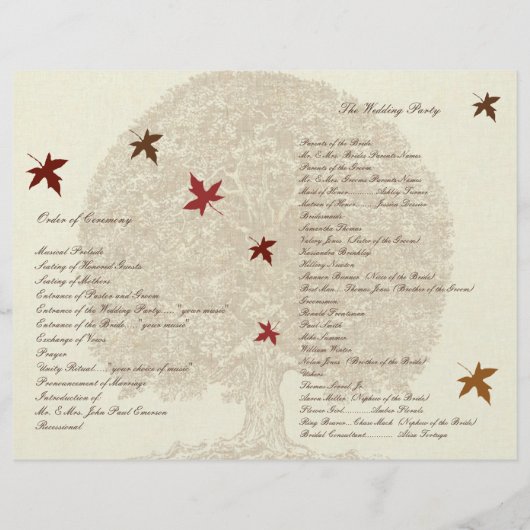 Order of Ceremony
Musical Prelude
Seating of Honored Guests
Seating of Mothers
Entrance of Pastor and Groom
Entrance of the Wedding Party..... "your music"
Entrance of the Bride..... "your music"
Exchange of Vows
Prayer
Unity Ritual....."your choice of music"
Pronouncement of Marriage
Introduction of:
Mr. & Mrs. John Paul Emerson
Recessional
The Wedding Party
Parents of the Bride
Mr. & Mrs. Brides Parents Names
Parents of the Groom
Mr. & Mrs. Grooms Parents Names
Maid of Honor...........Ashley Turner
Matron of Honor......... Jessica Dessier
Bridesmaids
Samantha Thomas
Valery Jones (Sister of the Groom)
Kassandra Brinkley
Hillary Newton
Shannen Bunner (Niece of the Bride)
Best Man...Thomas Jones (Brother of the Groom)
Groomsmen
Ronald
Paul Smith
Mike Summer
William Winter
Nolan Jones (Brother of the Bride)
Ushers
Thomas Jr.
Aaron Moller (Nephew of the Bride)
Flower Girl...........Amber Florals
Ring Bearer...Chase Mach (Nephew of the Bride)
Bridal Consultant............ Alisa Tortuga